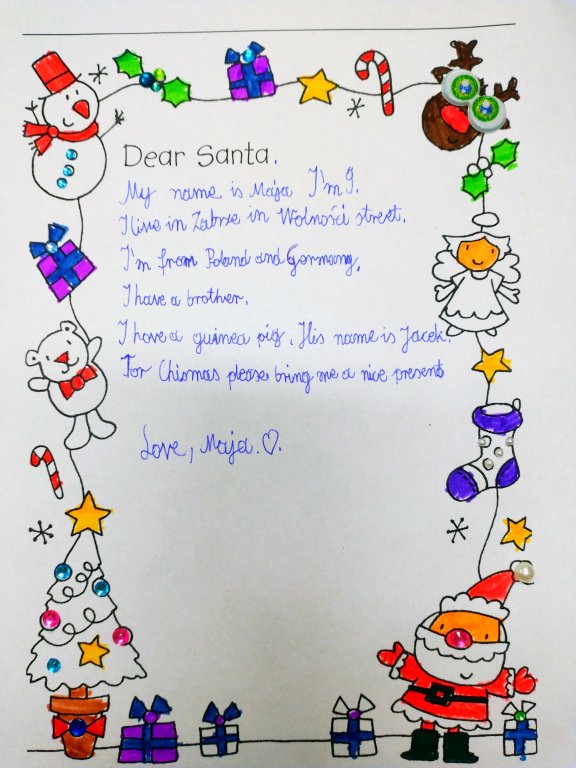 Dear Santa.
My name is Maja I'm 9.
I live in Zabrze in Wolności street.
I'm from Poland and Germany.
I have a brother.
I have a guinea pig. His name is Jacek.
For Chismas please bring me a nice present
Love, Maja. ♡.